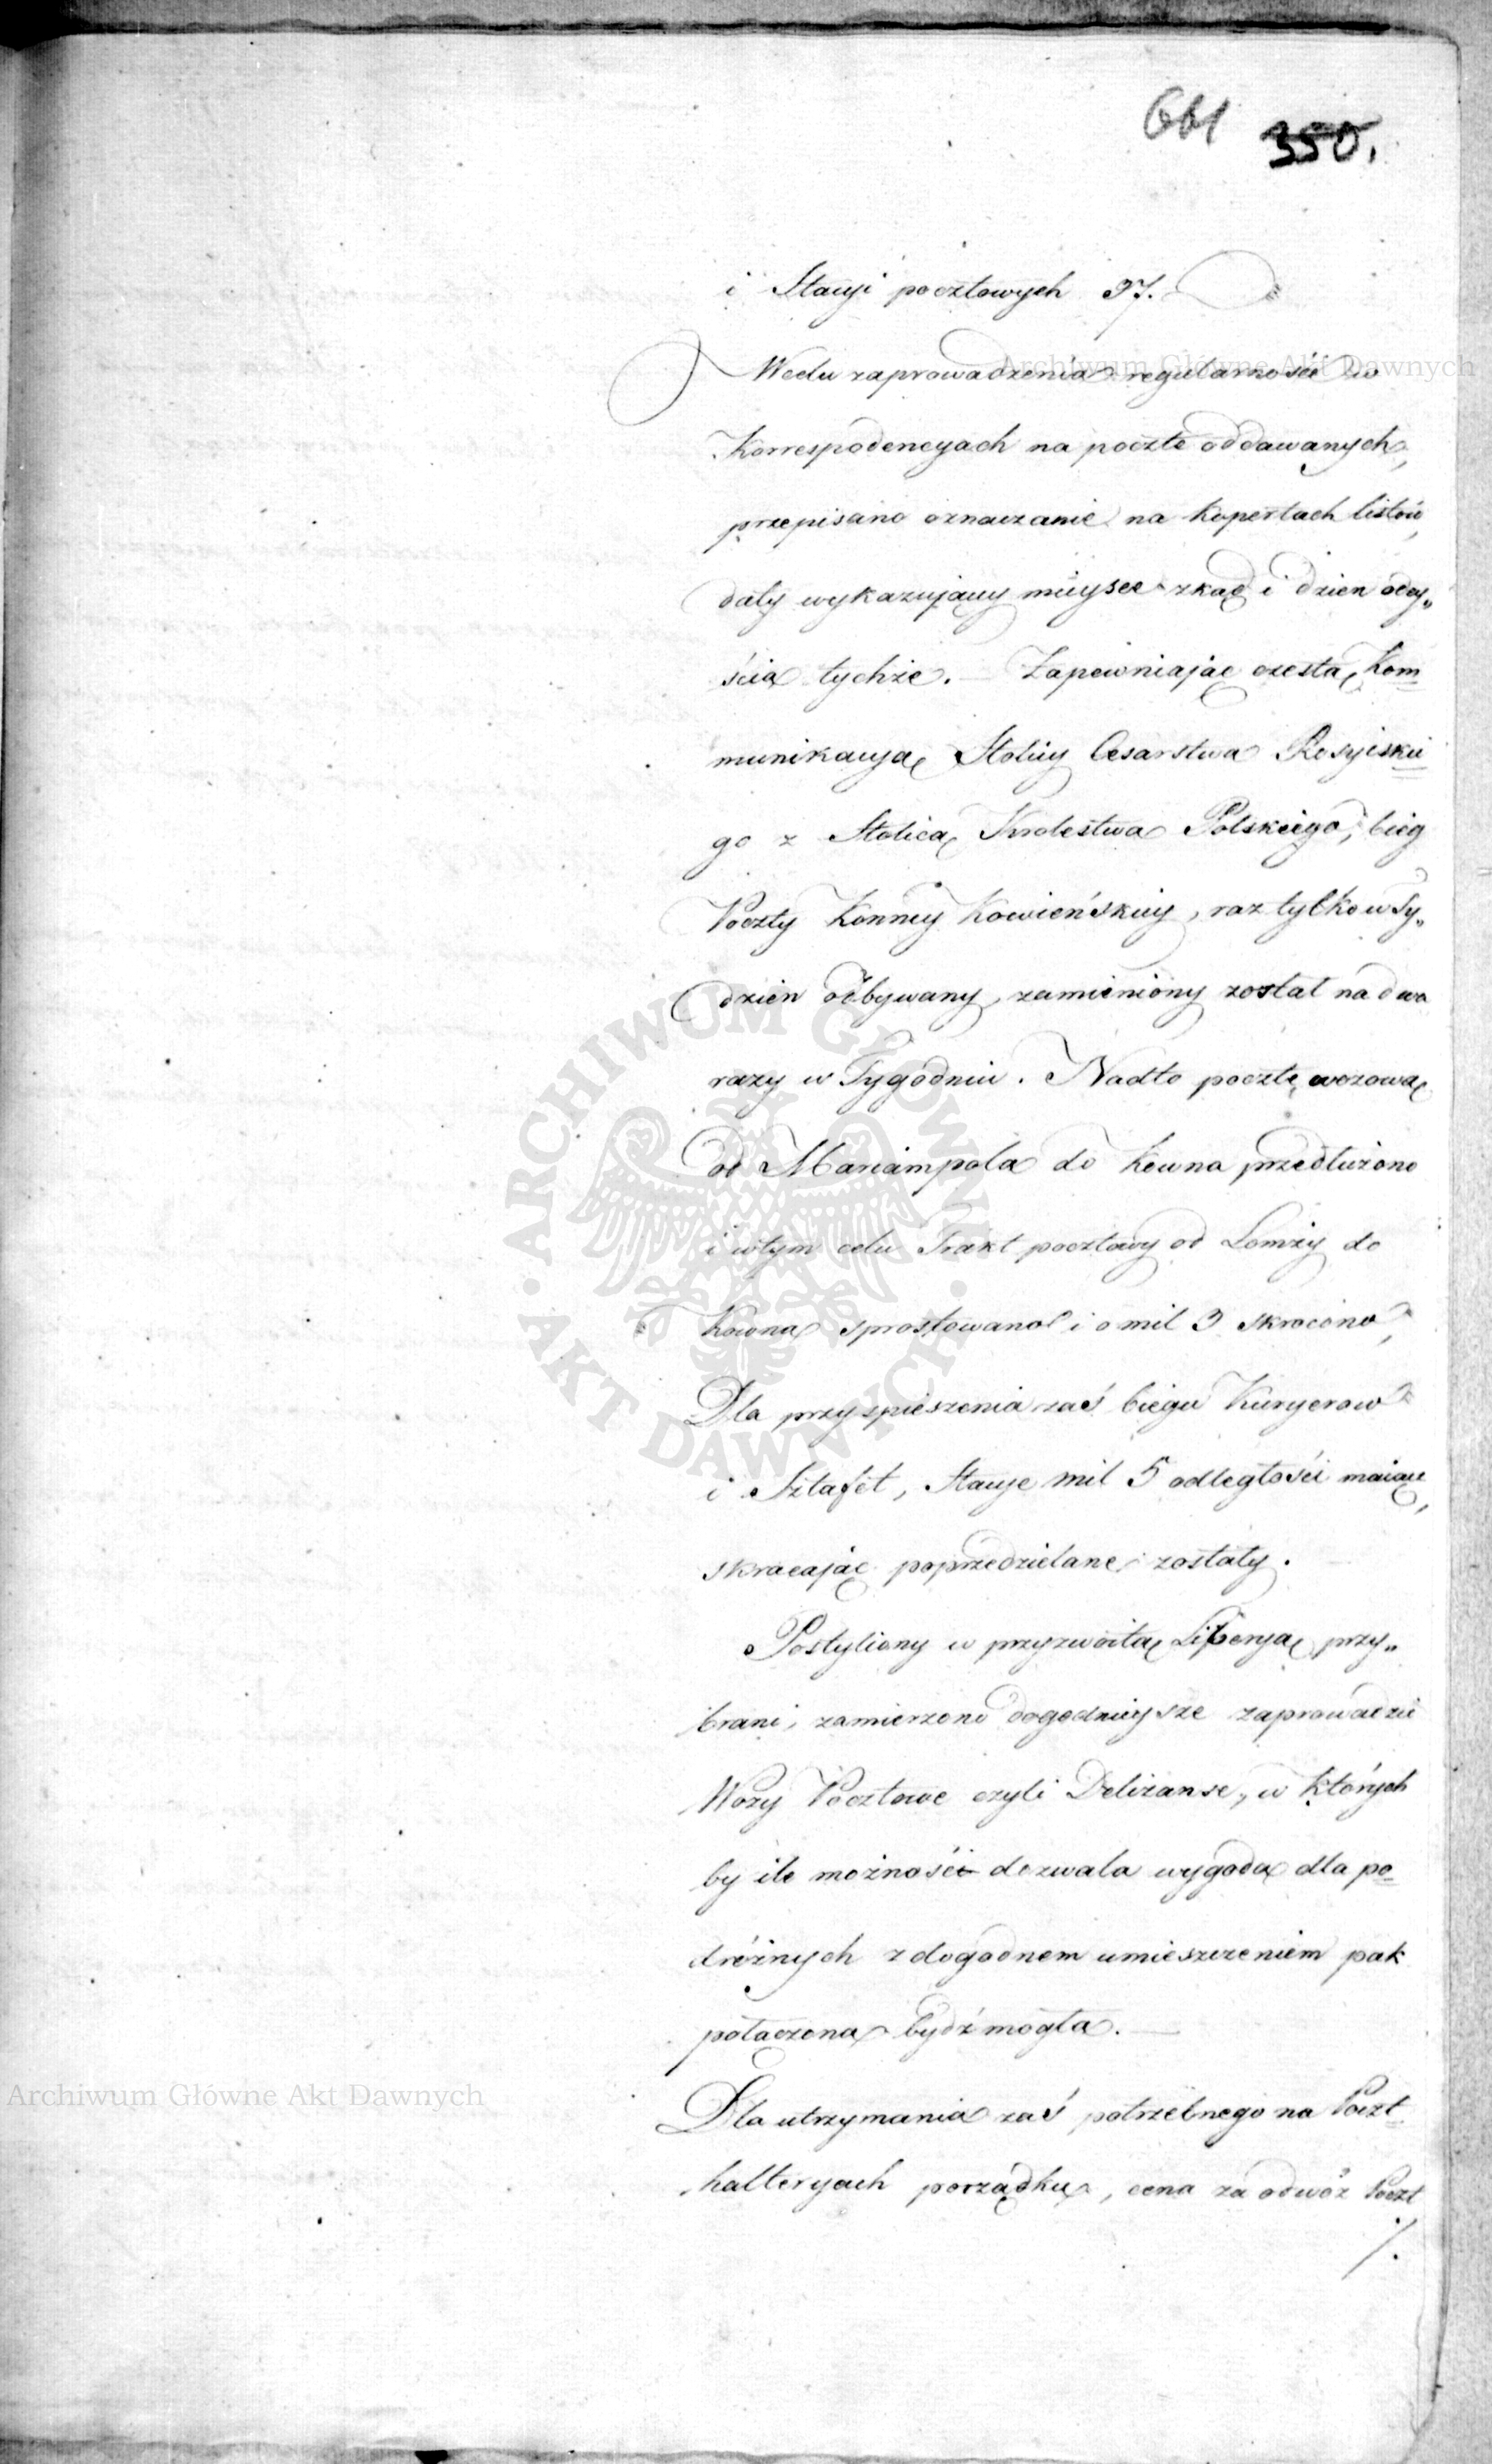 661 350.
i Stacyi pocztowych 97.
W celu zaprowadzenia regularności w
Archiwum Główne Akt Dawnych
Korrespodencyach na pocztę oddawanych,
przepisano oznaczanie na kopertach listów,
daty wykazującey mieysce zkąd i dzien odey„
ścia tychże. — Zapewniaiąc częstą Kom=
munikacyą Stolicy Cesarstwa Rosyiskie=
go z Stolicą Krolestwa Polskiego, bieg
Poczty Konney Kowieńskiey, raz tylko w Ty„
dzien odbywany, zamieniony został na dwa
razy w Tygodniu. Nadto pocztę wozową
od Mariampola do Kowna przedłużono
i wtym celu Trakt pocztowy od Łomży do
Kowna sprostowano i o mil 3 skrócono,
Dla przyspieszenia zaś biegu Kuryerow
i Sztafet, Stacye mil 5 odległości maiące,
skracaiąc poprzedzielane zostały.
Postyliony w przyzwoitą Liberyą przy„
brani, zamierzono dogodnieysze zaprowadzić
Wozy Pocztowe czyli Deliżanse, w których
by ile możności dozwala wygoda dla po=
dróżnych z dogodnem umieszczeniem pak
połączona bydź mogła. —
Archiwum Główne Akt Dawnych
Dla utrzymania zaś potrzebnego na Poczt=
halteryach porządku, cena za odwóz Poczt
/.
ARCHIWUM GŁÓWNE • AKT DAWNYCH •